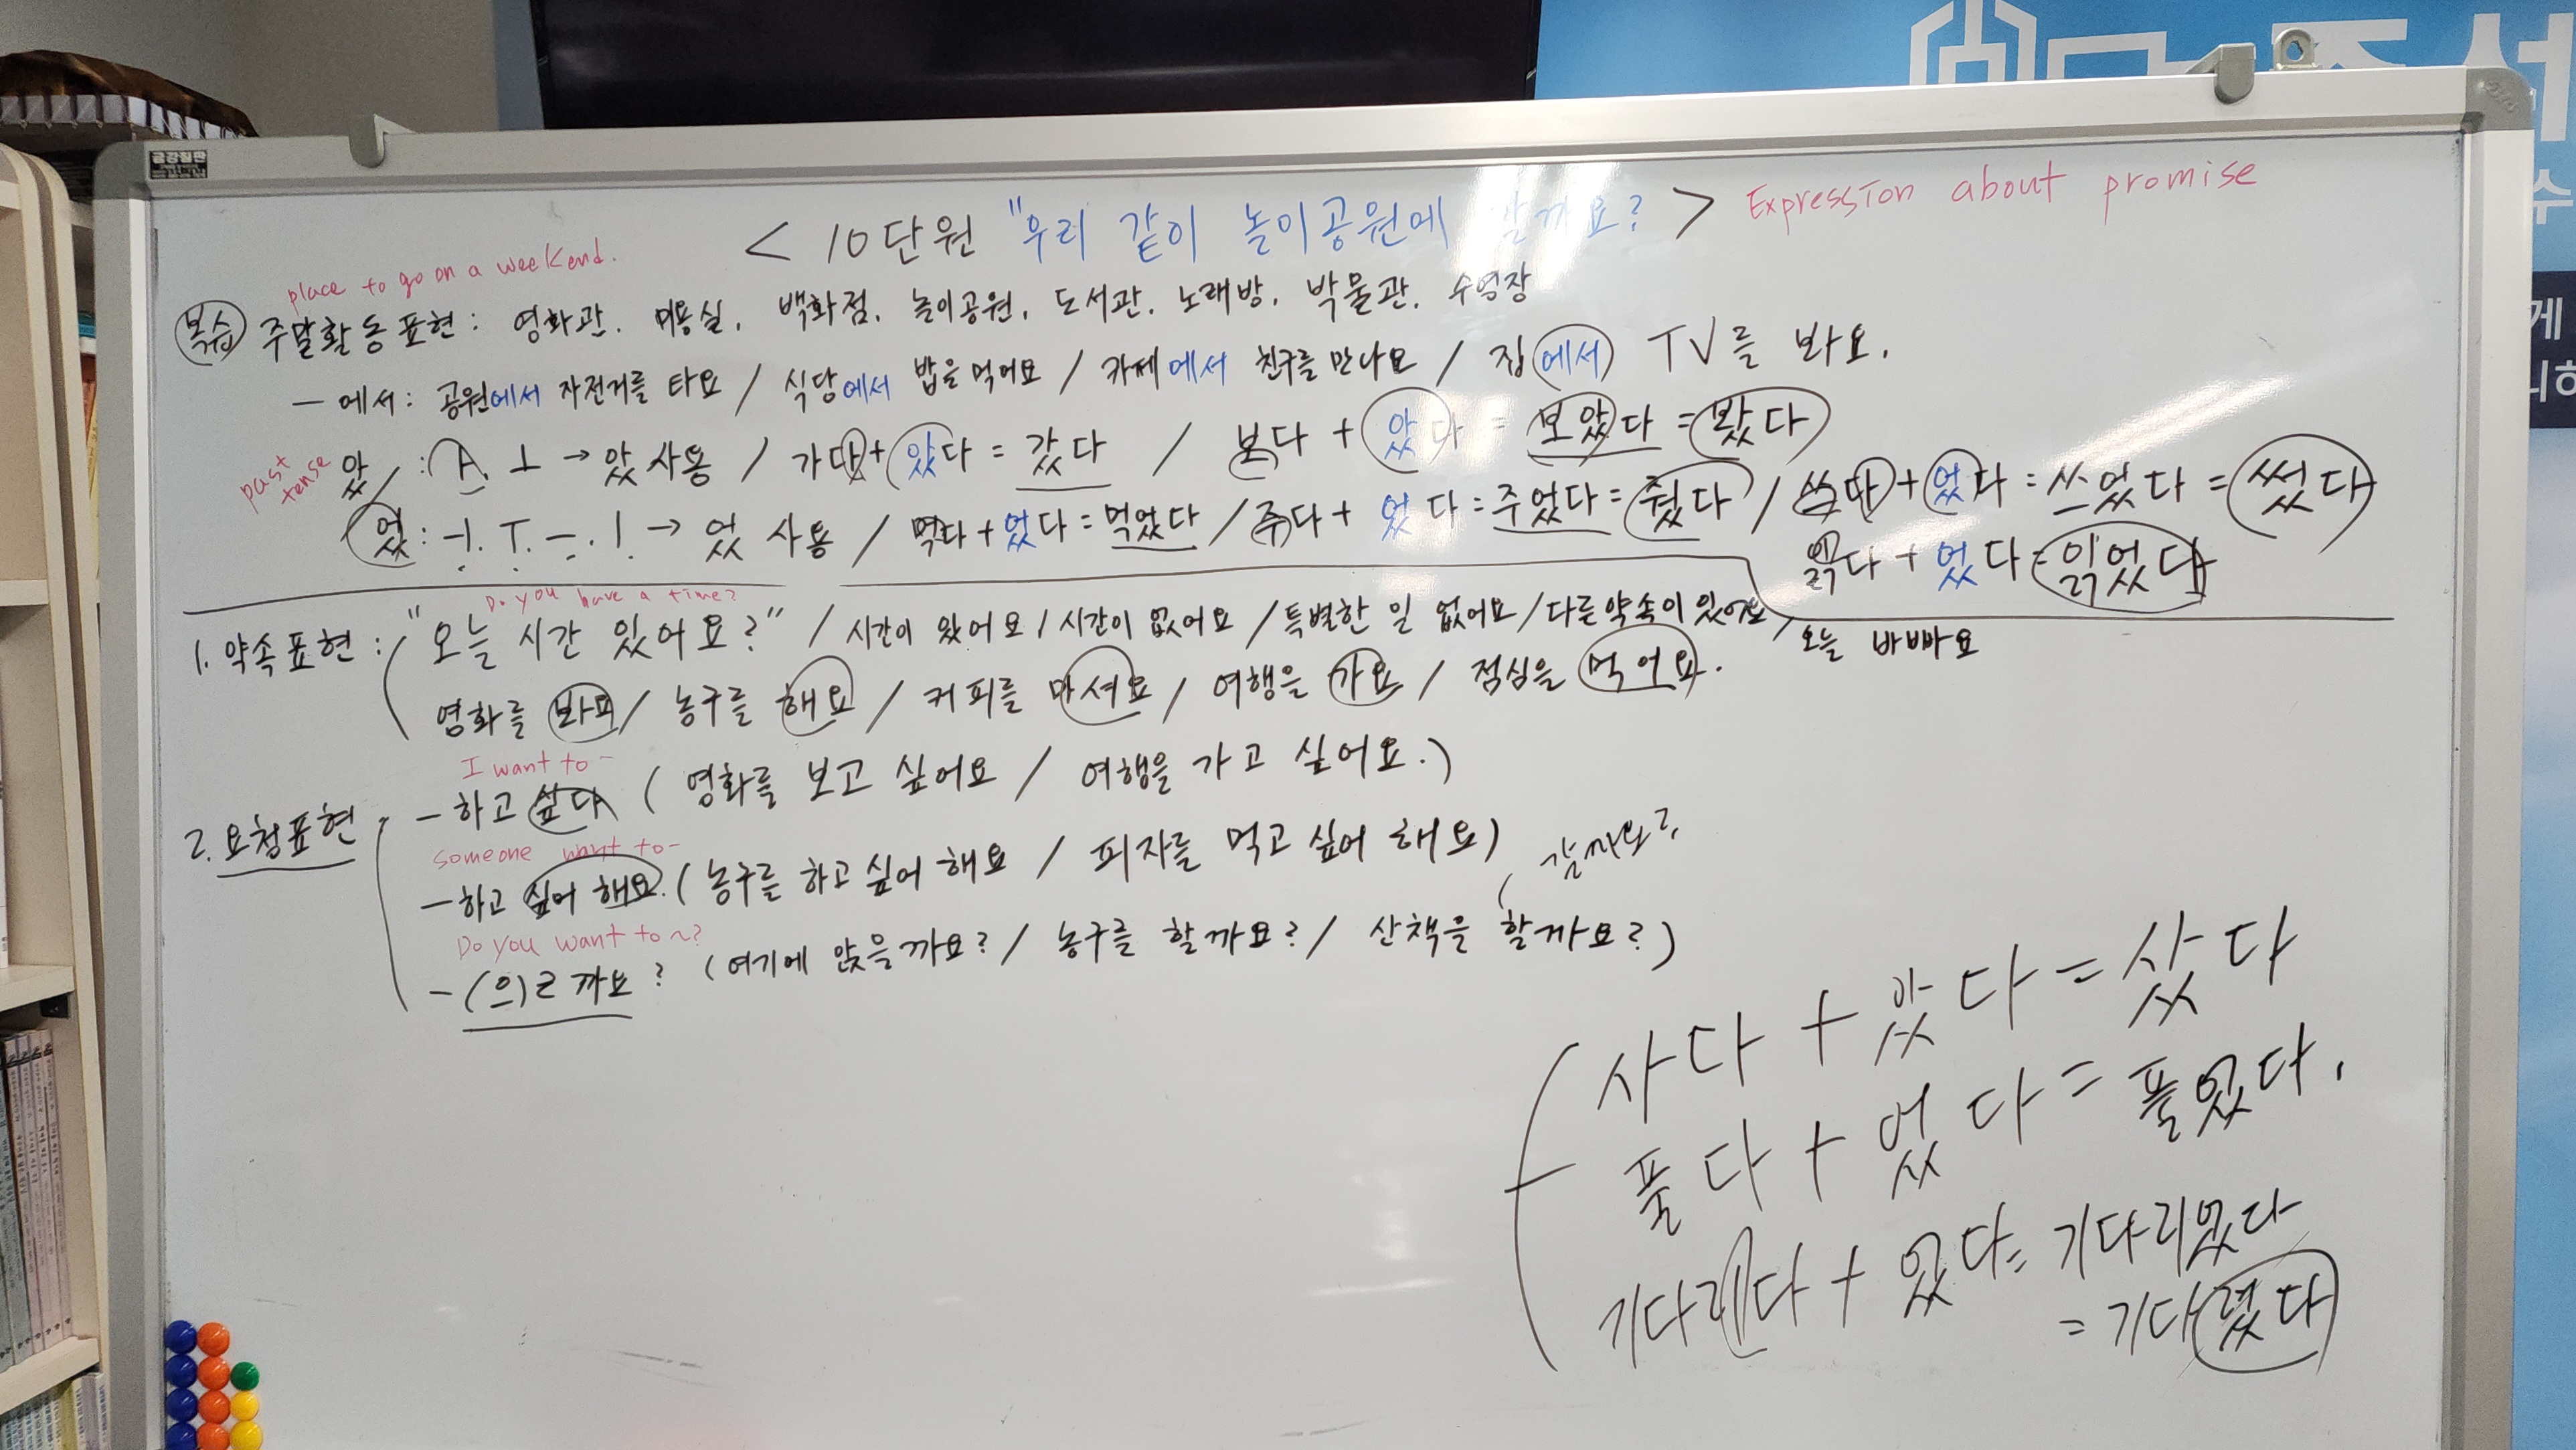 < 10단원 "우리 같이 놀이공원에 갈까요? > Expression about promise
place to go on a weekend.
복습 주말활동표현 : 영화관. 미용실. 백화점. 놀이공원. 도서관. 노래방. 박물관. 수영장
- 에서 : 공원에서 자전거를 타요 / 식당에서 밥을 먹어요 / 카페에서 친구를 만나요 / 집에서 TV를 봐요.
past tense
았/ : ㅏ. ㅗ → 았 사용 / 가다 + 았다 = 갔다 / 보다 + 았다 = 보았다 = 봤다
었 : ㅓ. ㅜ. ㅡ. ㅣ → 었 사용 / 먹다 + 었다 = 먹었다 / 주다 + 었다 = 주었다 = 줬다 / 쓰다 + 었다 = 쓰었다 = 썼다
읽다 + 었다 = 읽었다
Do you have a time?
1. 약속표현 : "오늘 시간 있어요?" / 시간이 있어요 / 시간이 없어요 / 특별한 일 없어요 / 다른 약속이 있어요 / 오늘 바빠요
영화를 봐요 / 농구를 해요 / 커피를 마셔요 / 여행을 가요 / 점심을 먹어요.
I want to -
2. 요청표현 - 하고 싶다 ( 영화를 보고 싶어요 / 여행을 가고 싶어요.)
someone want to -
- 하고 싶어 해요. ( 농구를 하고 싶어 해요 / 피자를 먹고 싶어 해요)
갈까요?
Do you want to ~?
- (으)ㄹ까요? (여기에 앉을까요? / 농구를 할까요? / 산책을 할까요?)
사다 + 았다 = 샀다
풀다 + 었다 = 풀었다.
기다리다 + 었다 = 기다리었다
= 기다렸다
금강칠판